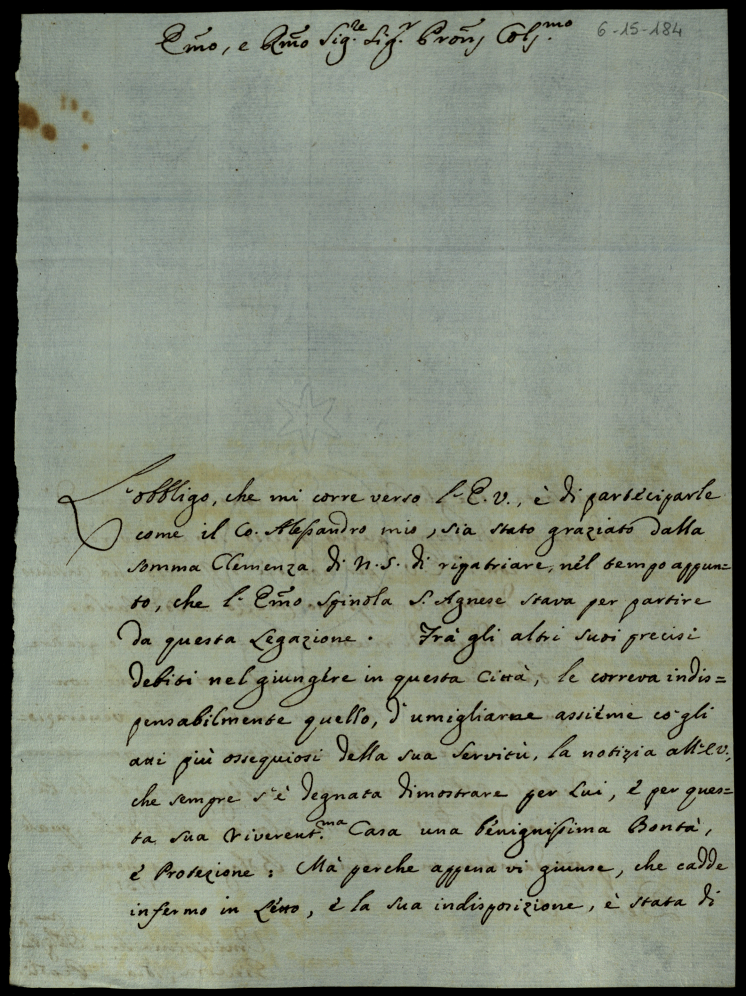 Emo, e Rmo Sig.re Sig.r Proñ Col.mo 6-15-184
L'obbligo, che mi corre verso l'E.V., è di participarle
come il Co. Alessandro mio, sia stato graziato dalla
somma Clemenza di N.S. di ripatriare, nel tempo appun=
to, che l'Emo Spinola S. Agnese stava per partire
da questa Legazione. Frà gli altri suoi precisi
debiti nel giungere in questa Città, le correva indis=
pensabilmente quello, d'umigliarne assiéme co'gli
atti più ossequiosi della sua servitù, la notizia all'E.V.,
che sempre s'è degnata dimostrare per Lui, è per ques=
ta sua riverent.ma Casa una benignissima Bontà,
è Protezione: Mà perche appena vi giunse, che cadde
infermo in Letto, è la sua indisposizione, è stata di